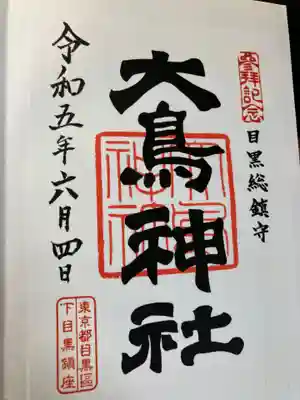 參拜記念
目黒総鎮守
大鳥神社
令和五年六月四日
東京都目黒區
下目黒鎮座